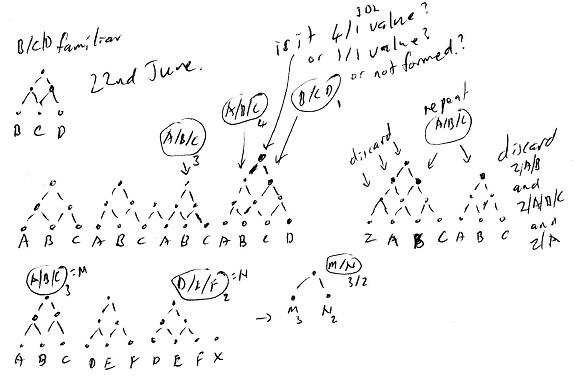 B/C/D familiar
22nd June.
is it 4/1 value?
or 1/1 value?
or not formed.?
B C D
A/B/C 3
A/B/C 4
B/C/D 1
repeat
A/B/C
discard
discard
Z/A/B
and
Z/A/B/C
and
Z/A
A B C A B C A B C A B C D
Z A B C A B C
A/B/C 3 = M
D/E/F 2 = N
M/N 3/2
→ M 3 N 2
A B C D E F D E F X